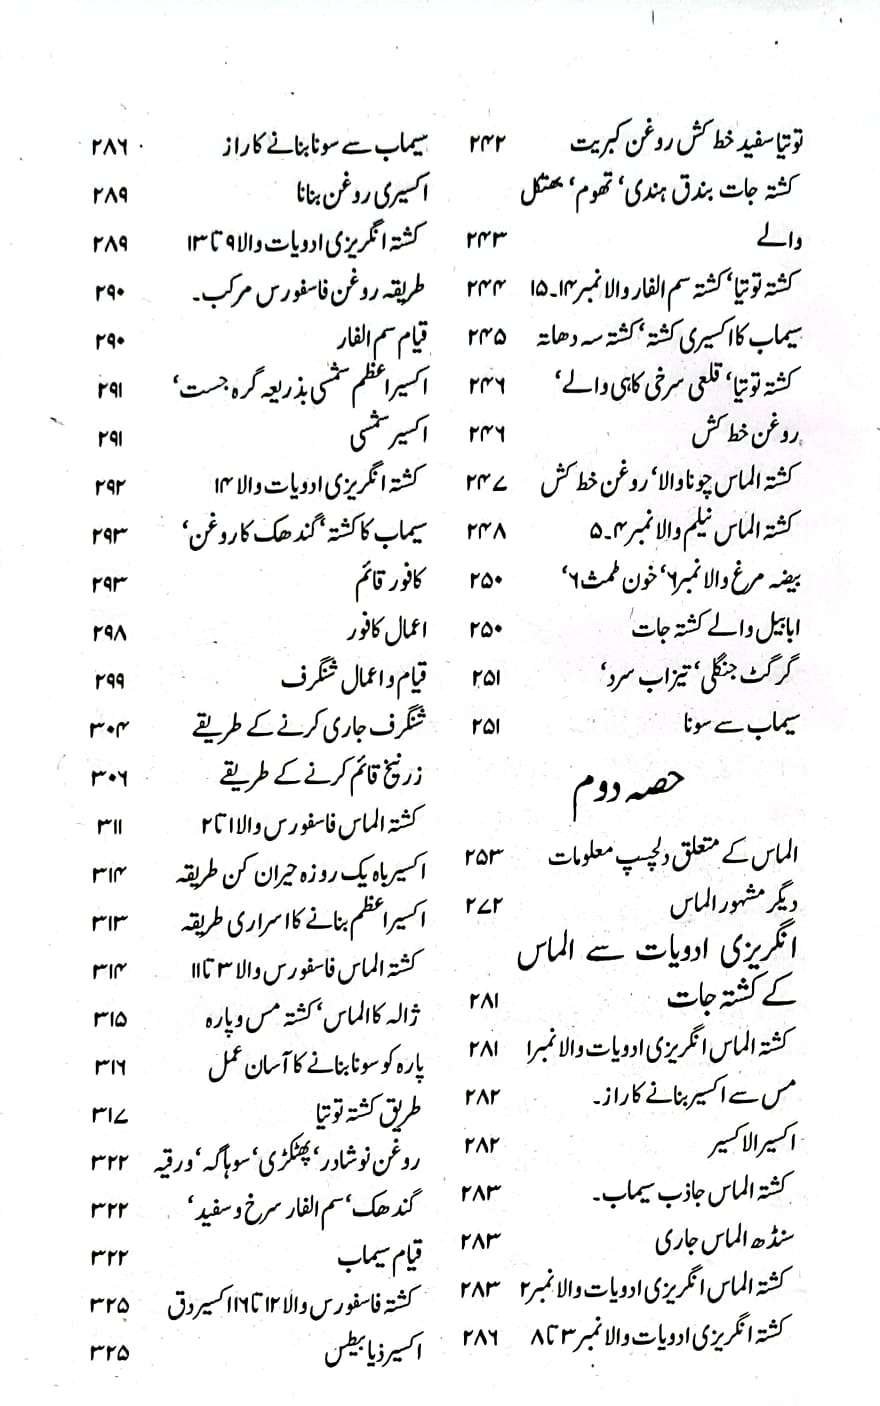 توتیا سفید خط کش روغن کبریت ۲۴۲
کشتہ جات بندق ہندی‘ تھوم‘ بھتکل
والے ۲۴۳
کشتہ توتیا‘ کشتہ سم الفار والا نمبر ۱۴۔۱۵ ۲۴۴
سیماب کا اکسیری کشتہ‘ کشتہ سہ دھاتہ ۲۴۵
کشتہ توتیا‘ قلعی سرخی کاہی والے‘ ۲۴۶
روغن خط کش ۲۴۶
کشتہ الماس چونا والا‘ روغن خط کش ۲۴۷
کشتہ الماس نیلم والا نمبر ۴۔۵ ۲۴۸
بیضہ مرغ والا نمبر ۶‘ خون طمث ۶‘ ۲۵۰
ابابیل والے کشتہ جات ۲۵۰
گرگٹ جنگلی‘ تیزاب سرد‘ ۲۵۱
سیماب سے سونا ۲۵۱
حصہ دوم
الماس کے متعلق دلچسپ معلومات ۲۵۳
دیگر مشہور الماس ۲۷۲
انگریزی ادویات سے الماس
کے کشتہ جات ۲۸۱
کشتہ الماس انگریزی ادویات والا نمبر ۱ ۲۸۱
مس سے اکسیر بنانے کا راز۔ ۲۸۲
اکسیر الاکسیر ۲۸۲
کشتہ الماس جاذب سیماب۔ ۲۸۳
سنڈھ الماس جاری ۲۸۳
کشتہ الماس انگریزی ادویات والا نمبر ۲ ۲۸۳
کشتہ انگریزی ادویات والا نمبر ۳ تا ۸ ۲۸۶
سیماب سے سونا بنانے کا راز ۲۸۶
اکسیری روغن بنانا ۲۸۹
کشتہ انگریزی ادویات والا ۹ تا ۱۳ ۲۸۹
طریقہ روغن فاسفورس مرکب۔ ۲۹۰
قیام سم الفار ۲۹۰
اکسیر اعظم شمسی بذریعہ گرہ جست‘ ۲۹۱
اکسیر شمسی ۲۹۱
کشتہ انگریزی ادویات والا ۱۴ ۲۹۲
سیماب کا کشتہ‘ گندھک کا روغن‘ ۲۹۳
کافور قائم ۲۹۳
اعمال کافور ۲۹۸
قیام و اعمال شنگرف ۲۹۹
شنگرف جاری کرنے کے طریقے ۳۰۴
زرنیخ قائم کرنے کے طریقے ۳۰۶
کشتہ الماس فاسفورس والا ۱ تا ۲ ۳۱۱
اکسیر باہ یک روزہ حیران کن طریقہ ۳۱۴
اکسیر اعظم بنانے کا اسراری طریقہ ۳۱۳
کشتہ الماس فاسفورس والا ۳ تا ۱۱ ۳۱۴
ژالہ کا الماس‘ کشتہ مس و پارہ ۳۱۵
پارہ کو سونا بنانے کا آسان عمل ۳۱۶
طریق کشتہ توتیا ۳۱۷
روغن نوشادر‘ پھٹکڑی‘ سوہاگہ‘ ورقیہ ۳۲۲
گندھک‘ سم الفار سرخ و سفید‘ ۳۲۲
قیام سیماب ۳۲۲
کشتہ فاسفورس والا ۱۲ تا ۱۱۶ اکسیر دق ۳۲۵
اکسیر ذیابیطس ۳۲۵